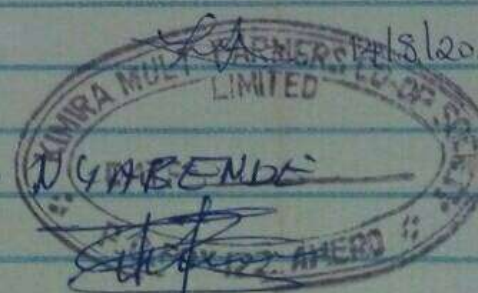 17/8/20
KIMIRA MULT FARMERS CO-OP SOCIETY
LIMITED
NYABENDE
AHERO